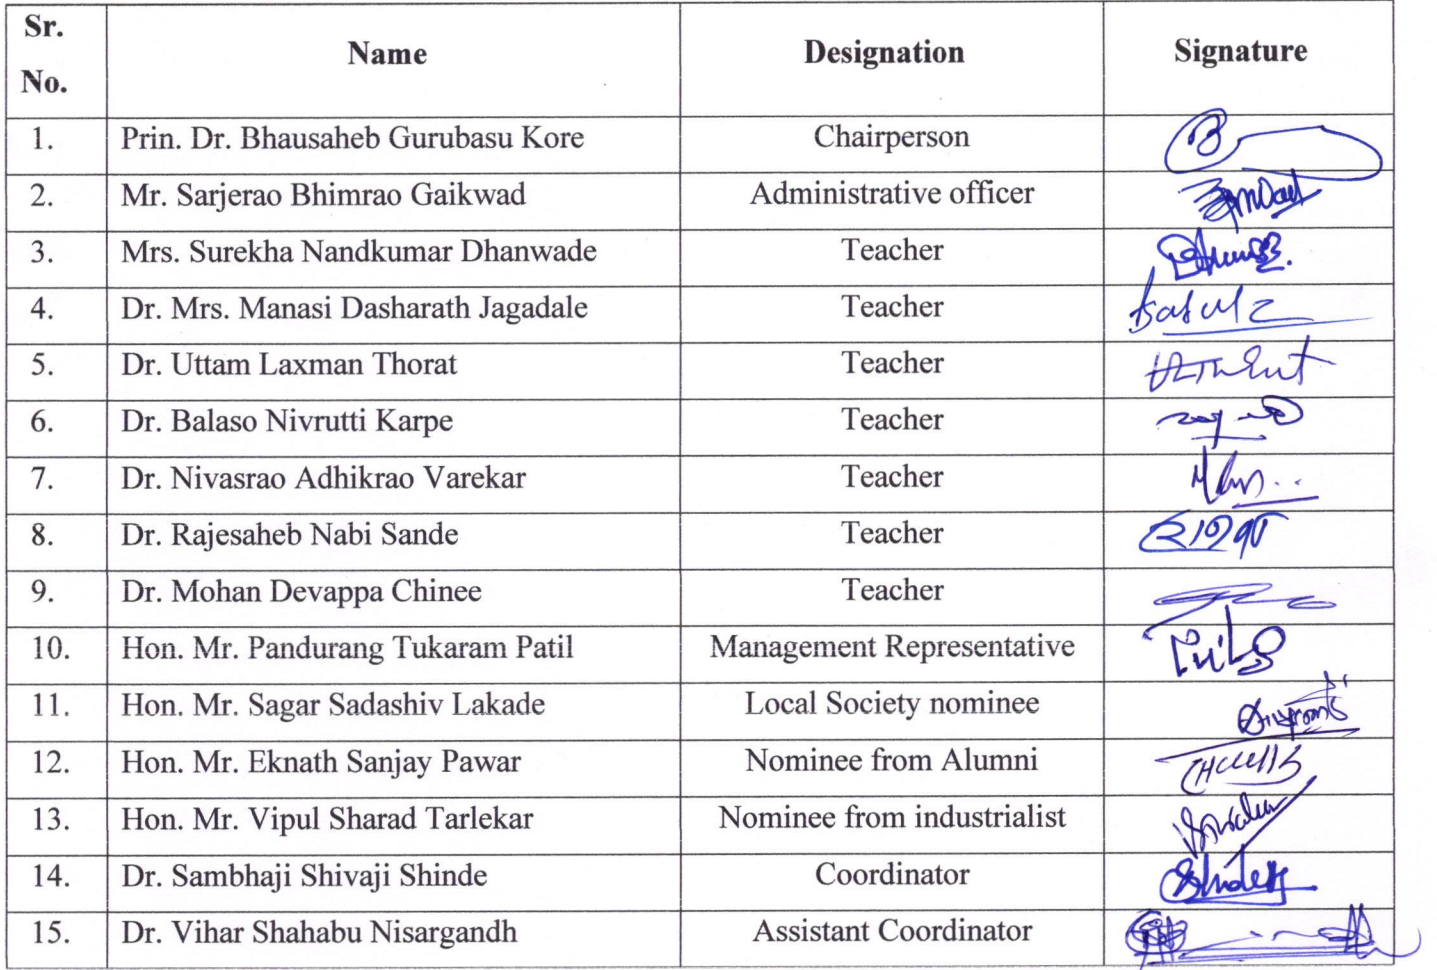 Sr. No. Name Designation Signature
1. Prin. Dr. Bhausaheb Gurubasu Kore Chairperson
2. Mr. Sarjerao Bhimrao Gaikwad Administrative officer
3. Mrs. Surekha Nandkumar Dhanwade Teacher
4. Dr. Mrs. Manasi Dasharath Jagadale Teacher
5. Dr. Uttam Laxman Thorat Teacher
6. Dr. Balaso Nivrutti Karpe Teacher
7. Dr. Nivasrao Adhikrao Varekar Teacher
8. Dr. Rajesaheb Nabi Sande Teacher
9. Dr. Mohan Devappa Chinee Teacher
10. Hon. Mr. Pandurang Tukaram Patil Management Representative
11. Hon. Mr. Sagar Sadashiv Lakade Local Society nominee
12. Hon. Mr. Eknath Sanjay Pawar Nominee from Alumni
13. Hon. Mr. Vipul Sharad Tarlekar Nominee from industrialist
14. Dr. Sambhaji Shivaji Shinde Coordinator
15. Dr. Vihar Shahabu Nisargandh Assistant Coordinator